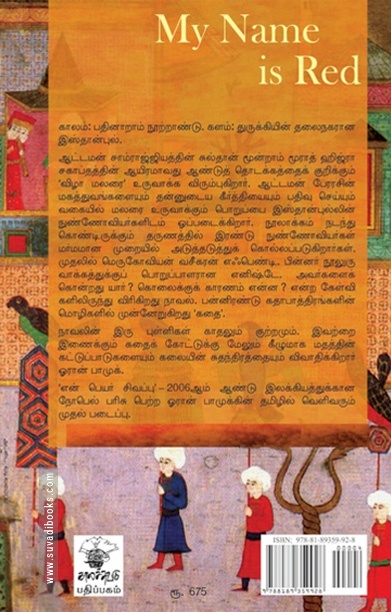 My Name
is Red
காலம்: பதினாறாம் நூற்றாண்டு. களம்: துருக்கியின் தலைநகரான
இஸ்தான்புல.
ஆட்டமன் சாம்ராஜ்ஜியத்தின் சுல்தான் மூன்றாம் மூராத் ஹிஜ்ரா
சகாபதத்தின் ஆயிரமாவது ஆண்டுத் தொடக்கத்தைக் குறிக்கும்
'விழா மலரை' உருவாக்க விரும்புகிறார். ஆட்டமன் பேரரசின்
மகத்துவங்களையும் தன்னுடைய கீர்த்தியையும் பதிவு செய்யும்
வகையில் மலரை உருவாக்கும் பொறுப்பை இஸ்தான்புல்லின்
நுண்ணோவியர்களிடம் ஒப்படைக்கிறார். நூலாக்கம் நடந்து
கொண்டிருக்கும் தருணத்தில் இரண்டு நுண்ணோவியர்கள்
மர்மமான முறையில் அடுத்தடுத்துக் கொல்லப்படுகிறார்கள்.
முதலில் மெருகோவியன் வசீகரன் எஃப்பெண்டி. பின்னர் நூலுரு
வாக்கத்துக்குப் பொறுப்பாளரான எனிஷ்டே. அவர்களைக்
கொன்றது யார்? கொலைக்குக் காரணம் என்ன? என்ற கேள்வி
களிலிருந்து விரிகிறது நாவல். பன்னிரண்டு கதாபாத்திரங்களின்
மொழிகளில் முன்னேறுகிறது 'கதை'.
நாவலின் இரு புள்ளிகள் காதலும் குற்றமும். இவற்றை
இணைக்கும் கதைக் கோட்டுக்கு மேலும் கீழுமாக மதத்தின்
கட்டுப்பாடுகளையும் கலையின் சுதந்திரத்தையும் விவாதிக்கிறார்
ஓரான் பாமுக்.
'என் பெயர் சிவப்பு' – 2006ஆம் ஆண்டு இலக்கியத்துக்கான
நோபெல் பரிசு பெற்ற ஓரான் பாமுக்கின் தமிழில் வெளிவரும்
முதல் படைப்பு.
www.suvadibooks.com
காலச்சுவடு
பதிப்பகம்
ரூ. 675
ISBN: 978-81-89359-92-8
00004
9 788189 359928